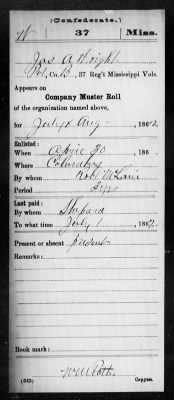 (Confederate.)
W 37 Miss.
Jas A Wright
Pvt, Co. B, 37 Reg't Mississippi Vols.
Appears on
Company Muster Roll
of the organization named above,
for July & Aug., 1862.
Enlisted:
When April 30, 186
Where Columbus
By whom Robt McLain
Period 3 yrs
Last paid:
By whom Shepard
To what time July 1, 1862.
Present or absent present
Remarks:
Book mark:
(642) Copyist.